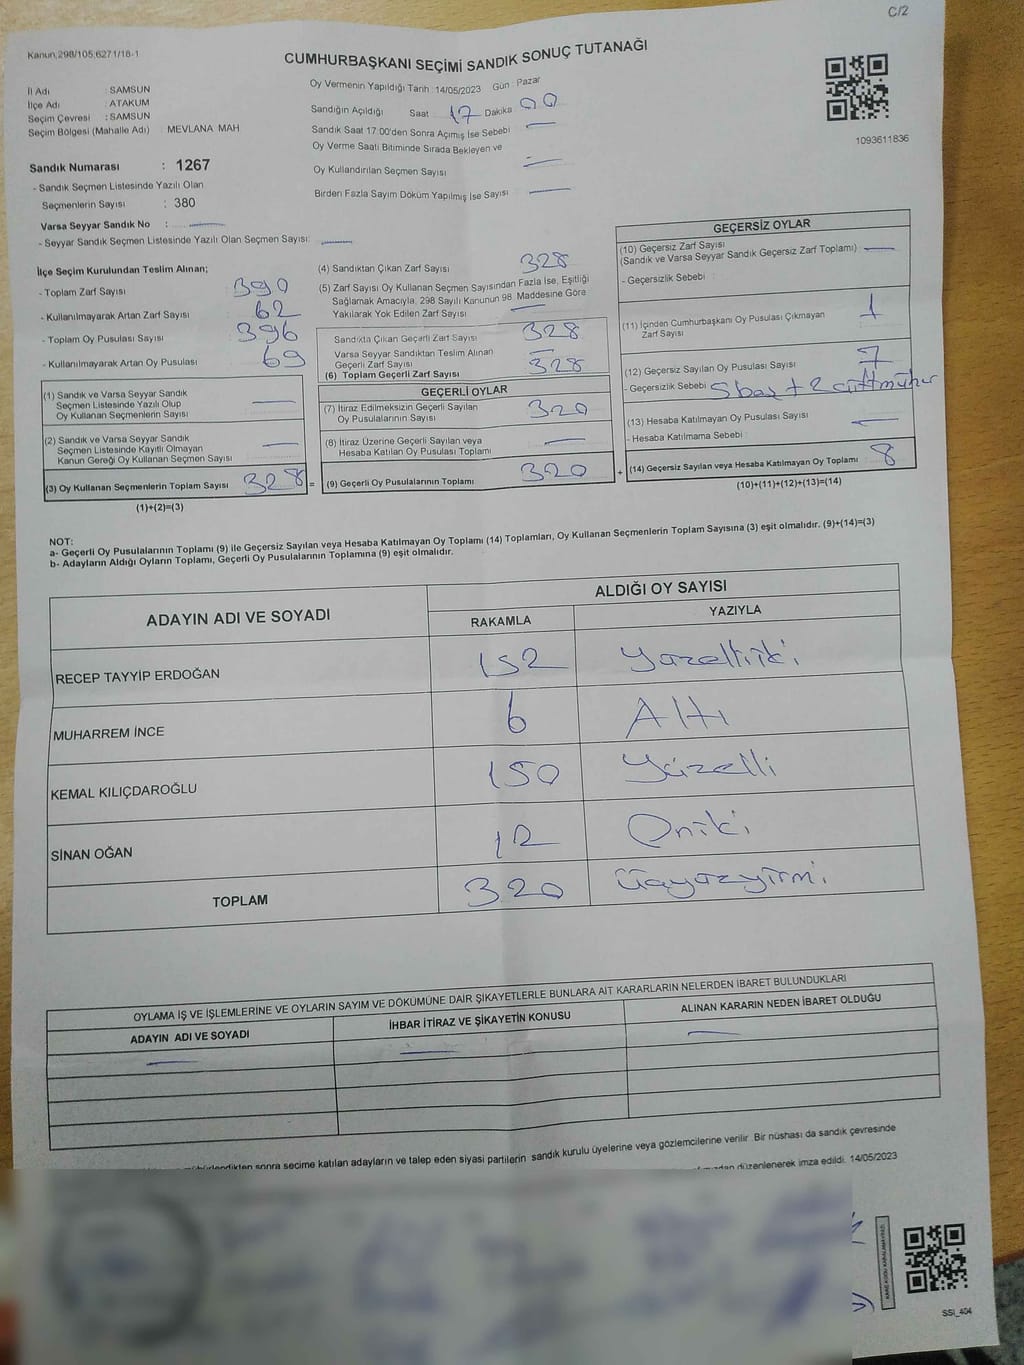 C/2
Kanun;298/105;6271/18-1
CUMHURBAŞKANI SEÇİMİ SANDIK SONUÇ TUTANAĞI
İl Adı : SAMSUN
İlçe Adı : ATAKUM
Seçim Çevresi : SAMSUN
Seçim Bölgesi (Mahalle Adı) : MEVLANA MAH
Sandık Numarası : 1267
- Sandık Seçmen Listesinde Yazılı Olan
Seçmenlerin Sayısı : 380
Varsa Seyyar Sandık No :
- Seyyar Sandık Seçmen Listesinde Yazılı Olan Seçmen Sayısı:
Oy Vermenin Yapıldığı Tarih :14/05/2023 Gün : Pazar
Sandığın Açıldığı Saat 17 Dakika 00
Sandık Saat 17:00'den Sonra Açımış İse Sebebi
Oy Verme Saati Bitiminde Sırada Bekleyen ve
Oy Kullandırılan Seçmen Sayısı
Birden Fazla Sayım Döküm Yapılmış İse Sayısı
1093611836
İlçe Seçim Kurulundan Teslim Alınan;
- Toplam Zarf Sayısı 390
- Kullanılmayarak Artan Zarf Sayısı 62
- Toplam Oy Pusulası Sayısı 396
- Kullanılmayarak Artan Oy Pusulası 69
(1) Sandık ve Varsa Seyyar Sandık
Seçmen Listesinde Yazılı Olup
Oy Kullanan Seçmenlerin Sayısı
(2) Sandık ve Varsa Seyyar Sandık
Seçmen Listesinde Kayıtlı Olmayan
Kanun Gereği Oy Kullanan Seçmen Sayısı
(3) Oy Kullanan Seçmenlerin Toplam Sayısı 328 =
(1)+(2)=(3)
(4) Sandıktan Çıkan Zarf Sayısı 328
(5) Zarf Sayısı Oy Kullanan Seçmen Sayısından Fazla İse, Eşitliği
Sağlamak Amacıyla, 298 Sayılı Kanunun 98. Maddesine Göre
Yakılarak Yok Edilen Zarf Sayısı
Sandıkta Çıkan Geçerli Zarf Sayısı 328
Varsa Seyyar Sandıktan Teslim Alınan
Geçerli Zarf Sayısı
(6) Toplam Geçerli Zarf Sayısı 328
GEÇERLİ OYLAR
(7) İtiraz Edilmeksizin Geçerli Sayılan
Oy Pusulalarının Sayısı 320
(8) İtiraz Üzerine Geçerli Sayılan veya
Hesaba Katılan Oy Pusulası Toplamı
(9) Geçerli Oy Pusulalarının Toplamı 320 +
GEÇERSİZ OYLAR
(10) Geçersiz Zarf Sayısı
(Sandık ve Varsa Seyyar Sandık Geçersiz Zarf Toplamı)
- Geçersizlik Sebebi :
(11) İçinden Cumhurbaşkanı Oy Pusulası Çıkmayan
Zarf Sayısı 1
(12) Geçersiz Sayılan Oy Pusulası Sayısı 7
- Geçersizlik Sebebi 5 boş + 2 çift mühür
(13) Hesaba Katılmayan Oy Pusulası Sayısı
- Hesaba Katılmama Sebebi :
(14) Geçersiz Sayılan veya Hesaba Katılmayan Oy Toplamı 8
(10)+(11)+(12)+(13)=(14)
NOT:
a- Geçerli Oy Pusulalarının Toplamı (9) ile Geçersiz Sayılan veya Hesaba Katılmayan Oy Toplamı (14) Toplamları, Oy Kullanan Seçmenlerin Toplam Sayısına (3) eşit olmalıdır. (9)+(14)=(3)
b- Adayların Aldığı Oyların Toplamı, Geçerli Oy Pusulalarının Toplamına (9) eşit olmalıdır.
ADAYIN ADI VE SOYADI
ALDIĞI OY SAYISI
RAKAMLA YAZIYLA
RECEP TAYYİP ERDOĞAN 152 Yüzelliiki
MUHARREM İNCE 6 Altı
KEMAL KILIÇDAROĞLU 150 Yüzelli
SİNAN OĞAN 12 Oniki
TOPLAM 320 üçyüzyirmi
OYLAMA İŞ VE İŞLEMLERİNE VE OYLARIN SAYIM VE DÖKÜMÜNE DAİR ŞİKAYETLERLE BUNLARA AİT KARARLARIN NELERDEN İBARET BULUNDUKLARI
ADAYIN ADI VE SOYADI İHBAR İTİRAZ VE ŞİKAYETİN KONUSU ALINAN KARARIN NEDEN İBARET OLDUĞU
sonra seçime katılan adayların ve talep eden siyasi partilerin sandık kurulu üyelerine veya gözlemcilerine verilir. Bir nüshası da sandık çevresinde
düzenlenerek imza edildi. 14/05/2023
SSİ_404